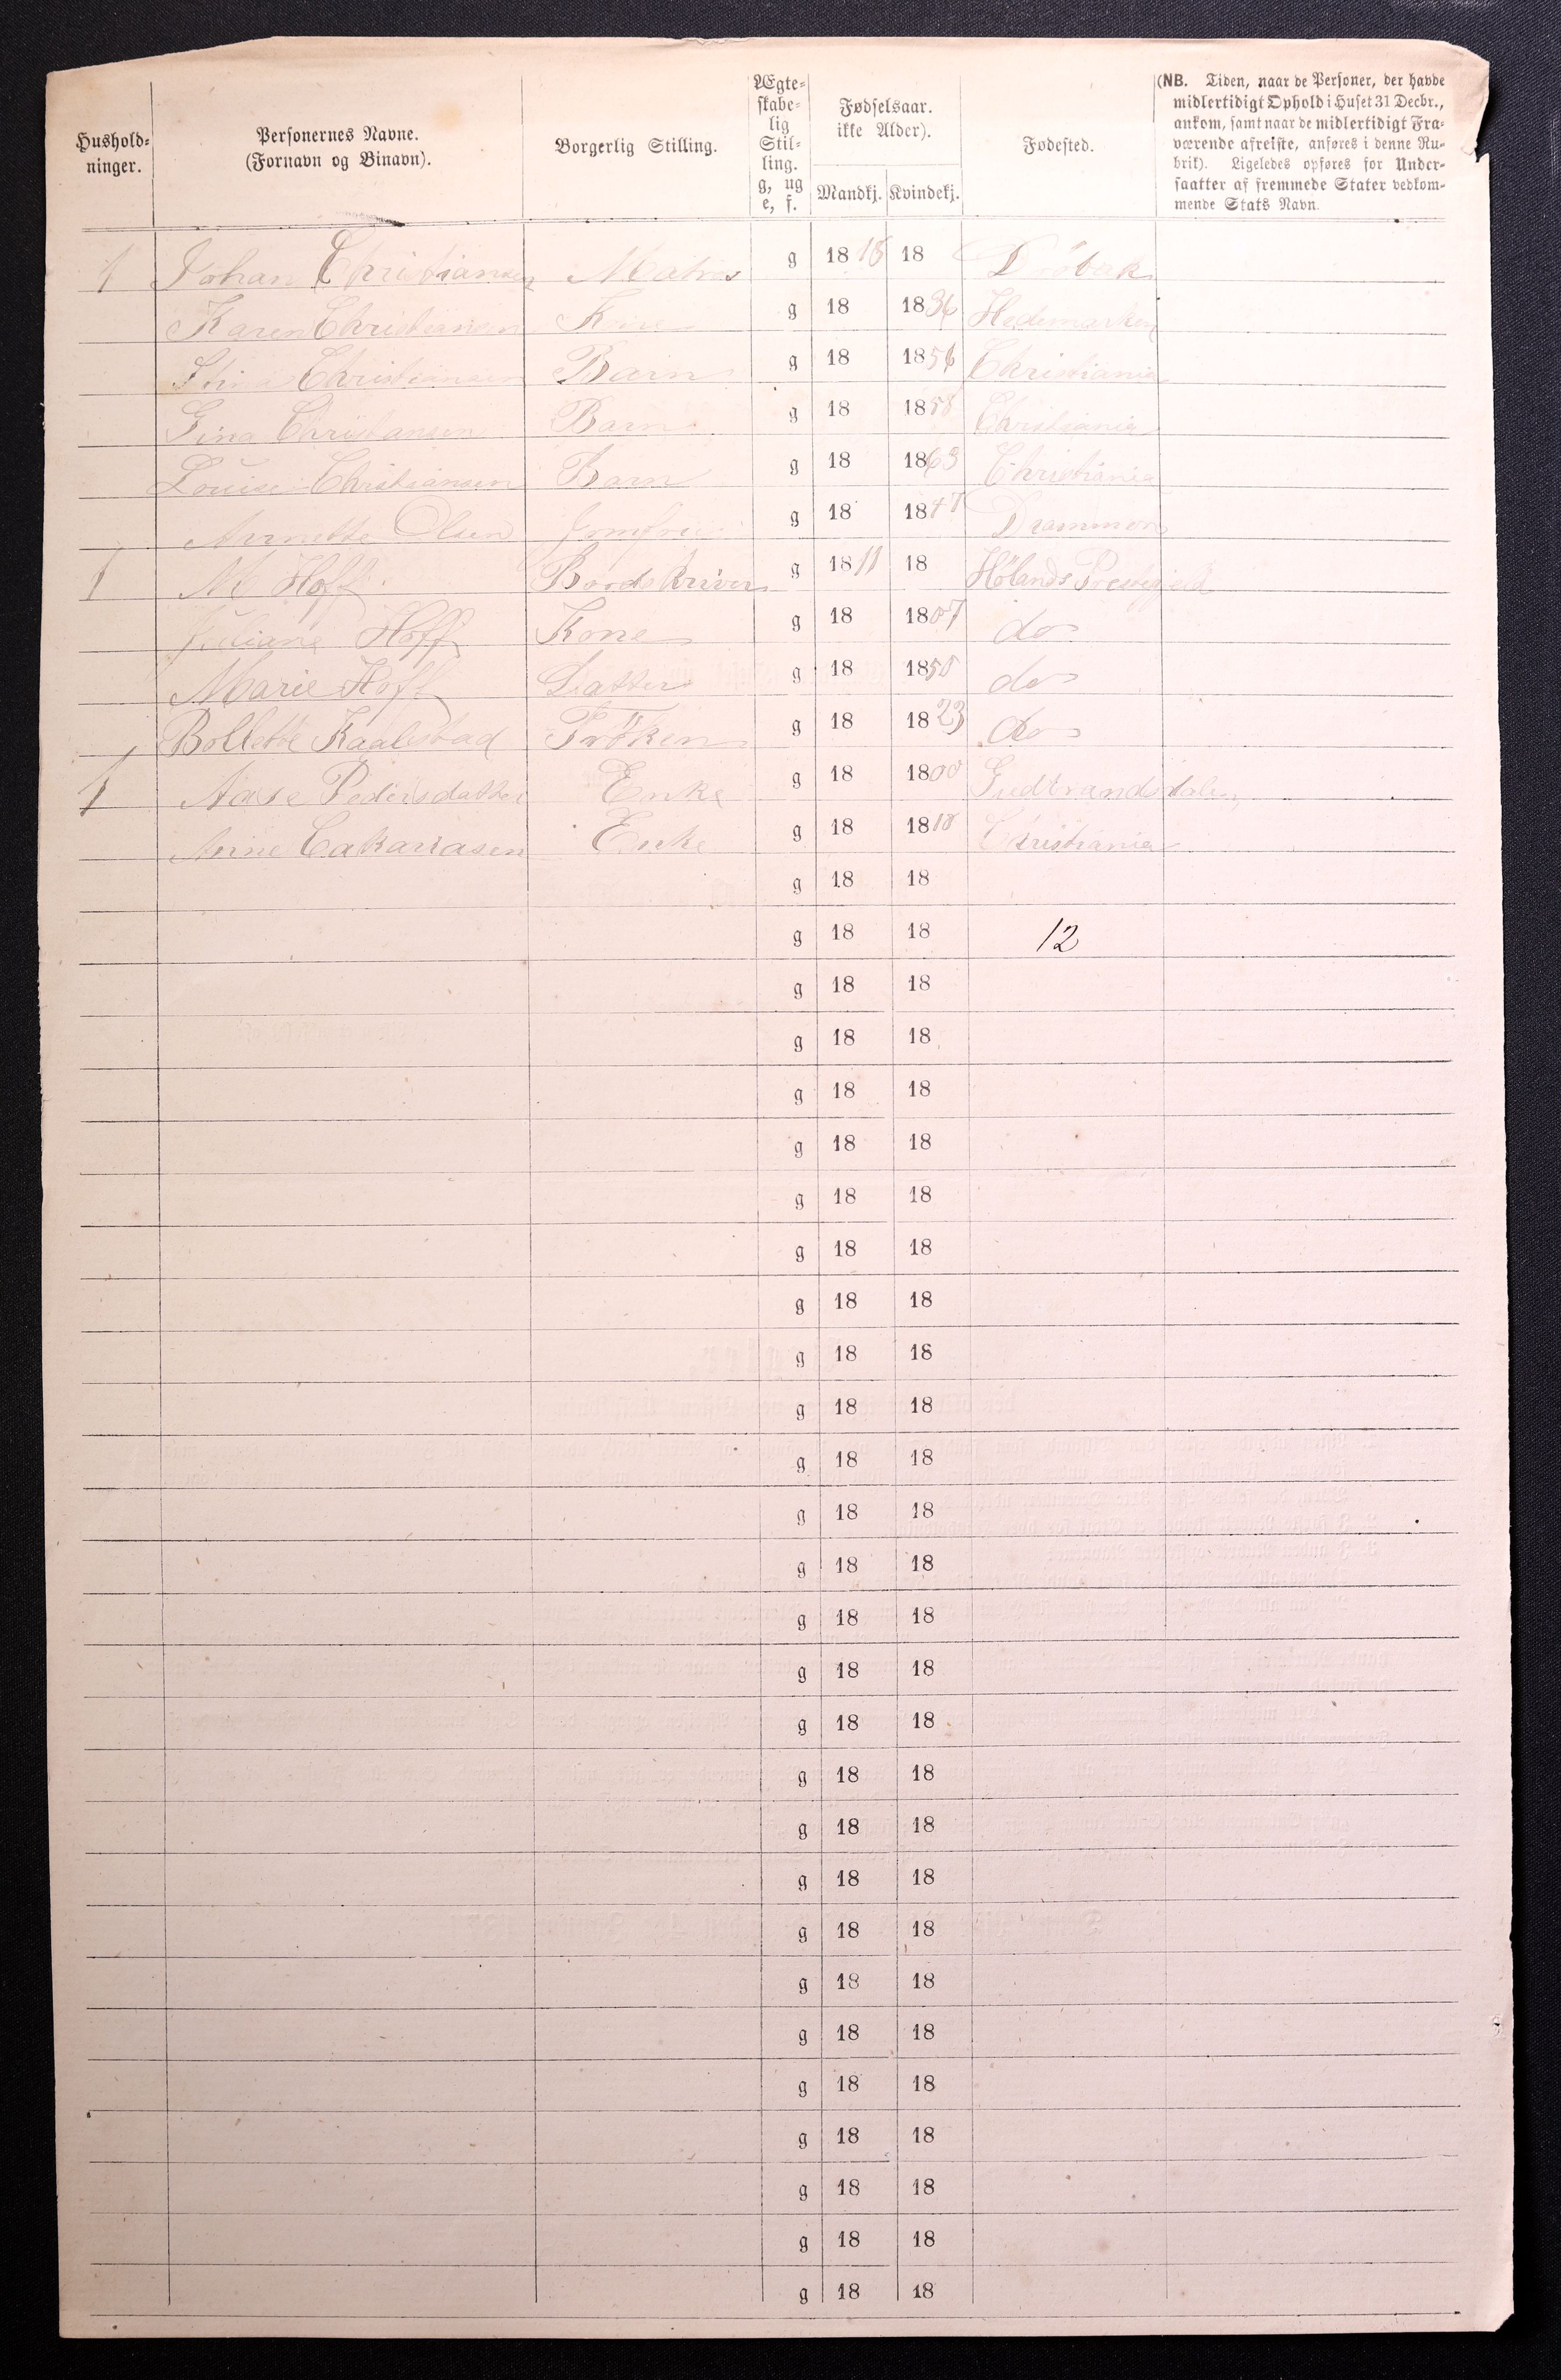 Hushold-
ninger.
Personernes Navne.
(Fornavn og Binavn).
Borgerlig Stilling.
Ægte-
skabe-
lig
Stil-
ling.
g, ug
e, f.
Fødselsaar.
ikke Alder).
Mandkj. Kvindekj.
Fødested.
(NB. Tiden, naar de Personer, der havde
midlertidigt Ophold i Huset 31 Decbr.,
ankom, samt naar de midlertidigt Fra-
værende afreiste, anføres i denne Ru-
brik). Ligeledes opføres for Under-
saatter af fremmede Stater vedkom-
mende Stats Navn.
1 Johan Christiansen Matros g 18 18 18 Dröbak
Karen Christiansen Kone g 18 1836 Hedemarken
Stina Christiansen Barn g 18 1856 Christiania
Gina Christansen Barn g 18 1858 Christiania
Louise Christiansen Barn g 18 1863 Christiania
Annette Olsen Jomfru g 18 1847 Drammen
1 M Hoff Bordskriver g 1811 18 Hölands Prestegjeld
Juliane Hoff Kone g 18 1807 do
Marie Hoff Datter g 18 1850 do
Bollette Kaalstad Fröken g 18 1823 do
1 Aase Pedersdatter Enke g 18 1800 Gudbrandsdalen
Anne Cakariasen Enke g 18 1818 Christiania
g 18 18
g 18 18 12
g 18 18
g 18 18
g 18 18
g 18 18
g 18 18
g 18 18
g 18 18
g 18 18
g 18 18
g 18 18
g 18 18
g 18 18
g 18 18
g 18 18
g 18 18
g 18 18
g 18 18
g 18 18
g 18 18
g 18 18
g 18 18
g 18 18
g 18 18
g 18 18
g 18 18
g 18 18